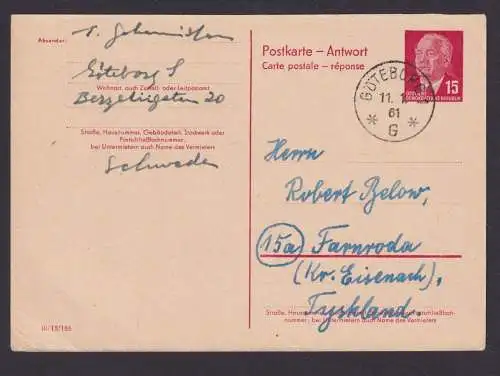 Absender:
Göteborg S
20
Wohnort, auch Zustell- oder Leitpostamt
Straße, Hausnummer, Gebäudeteil, Stockwerk oder
Postschließfachnummer;
bei Untermietern auch Name des Vermieters
Schweden
III/18/185
Postkarte – Antwort
Carte postale – réponse
15
DEUTSCHE
DEMOKRATISCHE REPUBLIK
GÖTEBORG
11. 1
61
G
Herrn
Robert Below,
15a Farnroda
(Kr. Eisenach),
Tyskland.
Straße, Hausnummer,
nummer; bei Untermietern auch Name des Vermieters